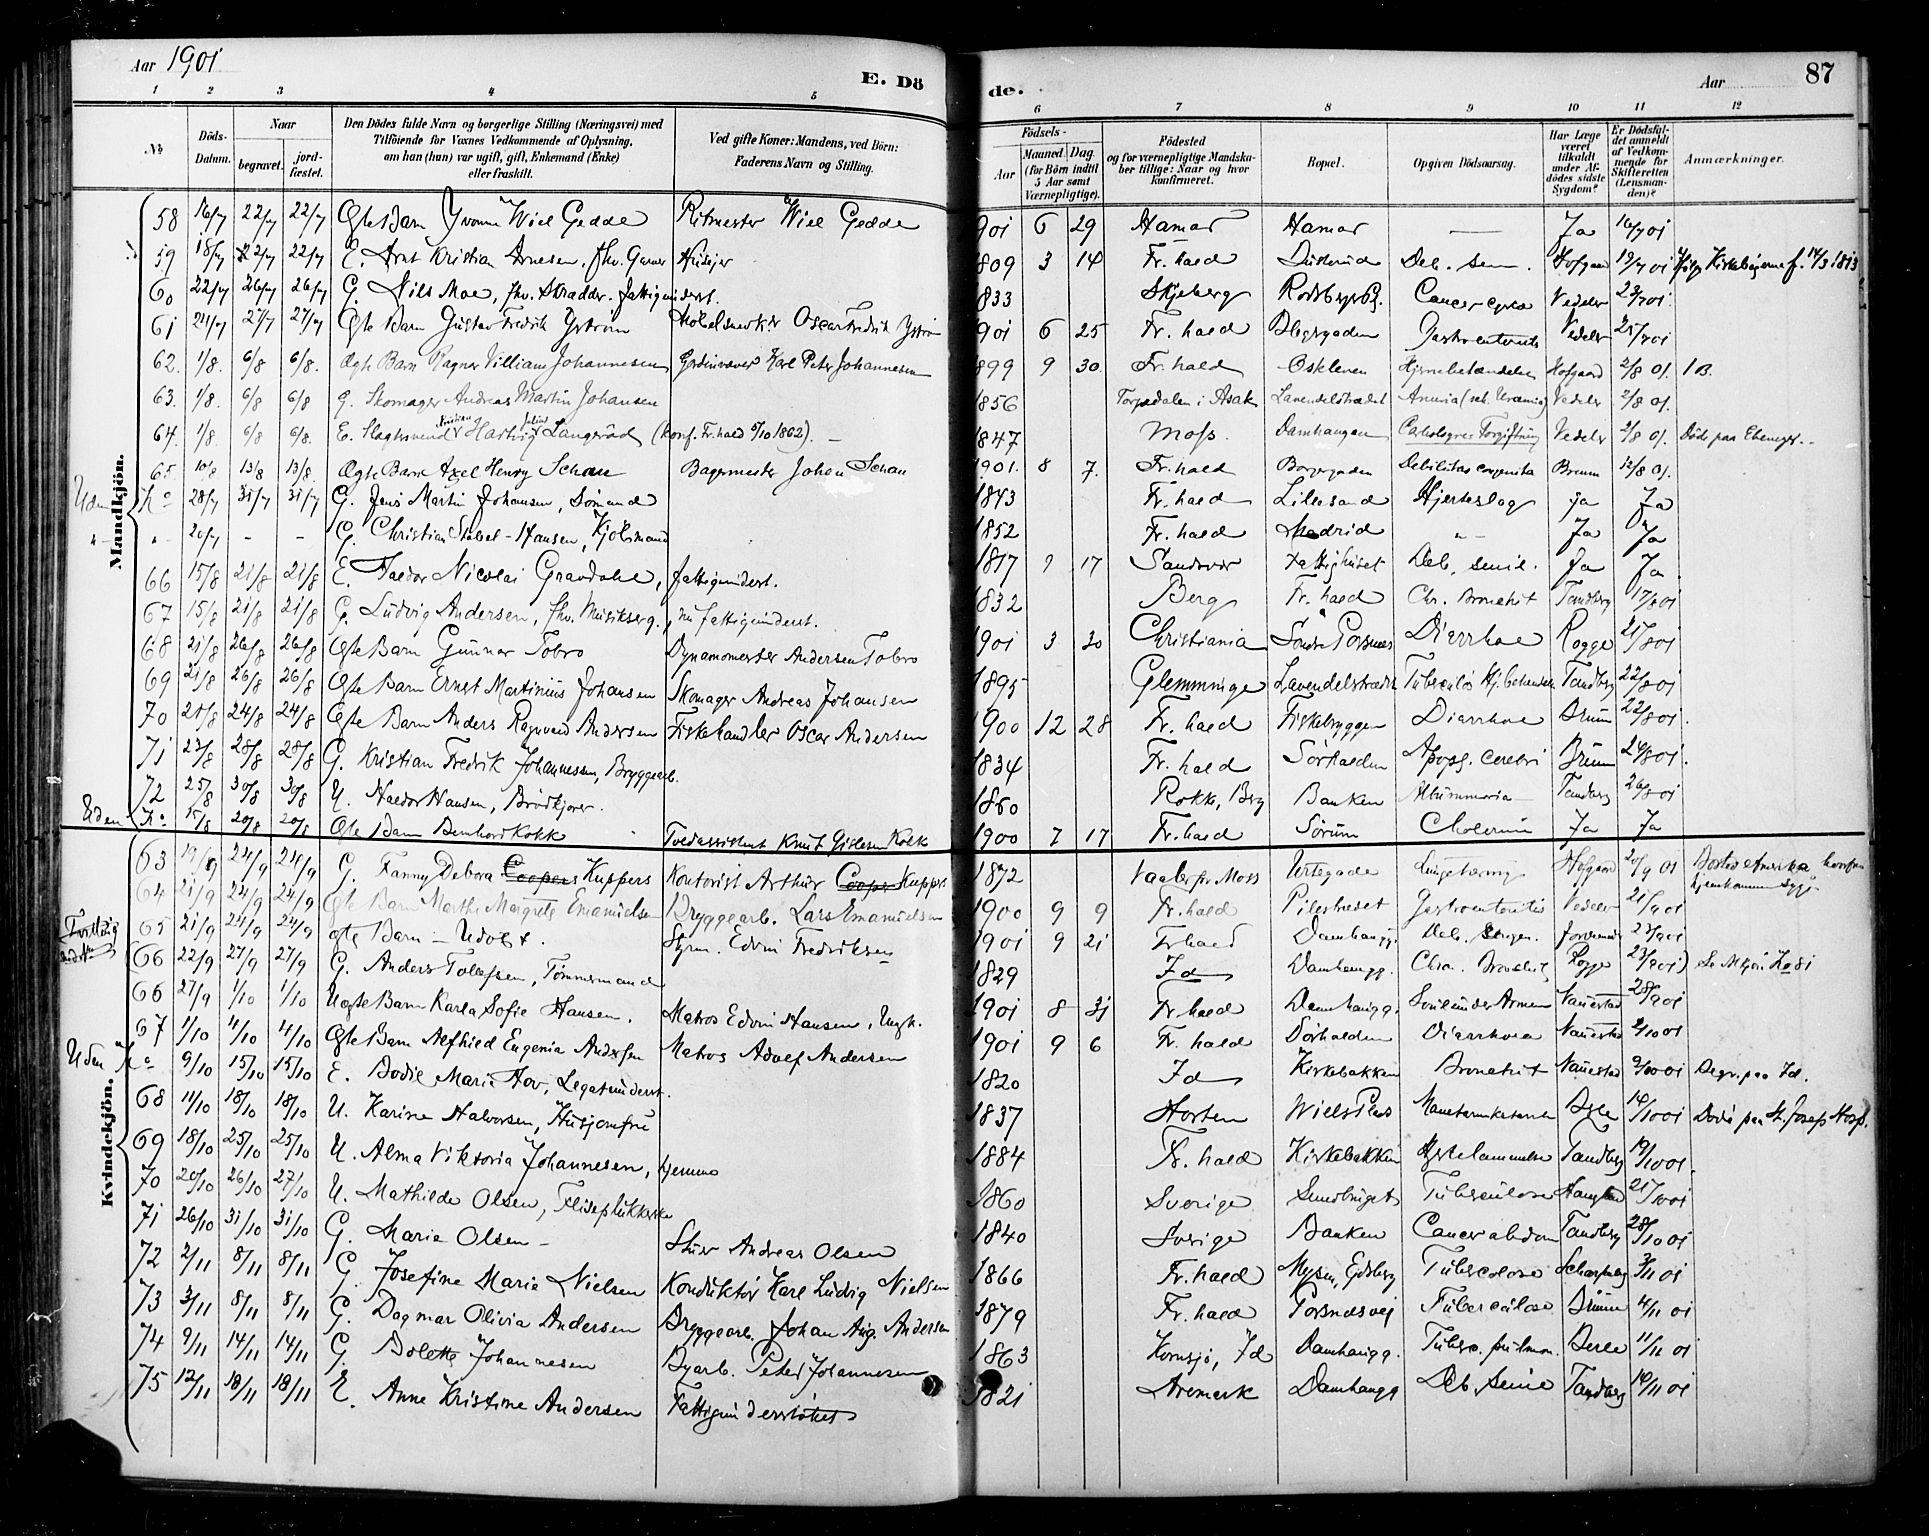 Aar 1901
E. Dö
de.
Aar
87
1 2 3 4 5 6 7 8 9 10 11 12
No.
Döds-Datum.
Naar
begravet.
jord-fæstet.
Den Dödes fulde Navn og borgerlige Stilling (Næringsvei) med
Tilföiende for Voxnes Vedkommende af Oplysning,
om han (hun) var ugift, gift, Enkemand (Enke)
eller fraskilt.
Ved gifte Koner: Mandens, ved Börn:
Faderens Navn og Stilling.
Födsels-
Aar
Maaned. Dag.
(for Börn indtil 5 Aar samt Værnepligtige).
Födested
og for værnepligtige Mandska-
ber tillige: Naar og hvor
konfirmeret.
Bopæl.
Opgiven Dödsaarsag.
Har Læge været tilkaldt under Af-dödes sidste Sygdom?
Er Dödsfal-det anmeldt af Vedkom-mende for Skifteretten (Lensman-den)?
Anmærkninger.
Mandkjön.
58 16/7 22/7 22/7 Ægte Barn Yvonne Wiel Gedde Ritmester Wiel Gedde 901 6 29 Hamar Hamar — Ja 16/7 01
59 18/7 22/7 22/7 E. Arnt Kristian Arnesen, fhv. Husejer 1809 3 14 Fr. hald Deb. sen. Hofgaard 19/7 01
60 22/7 26/7 26/7 G. Nils Moe, fhv. Skrædder. fattigunderst. 833 Skjeberg Rødsbergs Cancer Vedeler 23/7 01
61 24/7 27/7 27/7 Ægte Barn Gustav Fredrik Ystrøm Møbelsnedker Oscar Fredrik Ystrøm 901 6 25 Fr. hald Gastroenterit Vedeler 25/7 01
62. 1/8. 6/8 6/8. Ægte Barn Ragnar Villiam Johannesen Karl Peter Johannesen 899 9 30 Fr. hald Oskleven Hjernebetændelse Hofgaard 2/8 01. 1 B.
63. 1/8. 6/8 6/8 G. Skomager Andreas Martin Johansen 1856 Torpedalen i Asak Lavendelstrædet Anuria Vedeler 2/8 01.
64. 1/8. 6/8 6/8. E. Slagtersvend Kristian Hartvig Julius Langerød (Konf. Fr.hald 5/10 1862). — 1847 Moss. Damhaugen Carbolsyre Forgiftning Vedeler 2/8 01. Døde paa Ebenezer.
65. 10/8 13/8 13/8 Ægte Barn Axel Henry Schau Bagermester Johan Schau 1901. 8 7. Fr. hald Borgergaden Debilitas congenita Bruun 12/8 01.
Uden No 28/7 31/7 31/7 G. Jens Martin Johansen, Sømand 1843 Fr. hald Lillesand Hjerteslag ja Ja
" " 20/7 - - G. Christian Stabel-Hansen, Kjøbmand 1852 Fr. hald Madrid " Ja Ja
66 15/8 21/8 21/8 E. Haldor Nicolai Gravdahl, fattigunderst. 1817 9 17 Sandsvær Fattighuset Deb. senil. Ja Ja
67 15/8 21/8 21/8 G. Ludvig Andersen, fhv. Musikserg., nu fattigunderst. 1832 Berg Fr. hald Chr. Bronchit Tandberg 17/8 01
68 21/8 26/8 26/8 Ægte Barn Gunnar Tobro Dynamomester Andersen Tobro 1901 3 30 Christiania Søndre Porsnes Diarrhoe Rogge 21/8 01
69 21/8 26/8 26/8 Ægte Barn Ernst Martinius Johansen Skomager Andreas Johansen 1895 Glemminge Lavendelstrædet Tuberculøs Hj.betændelse Tandberg 22/8 01
70 21/8 24/8 24/8 Ægte Barn Anders Ragnvald Andersen Fiskehandler Oscar Andersen 1900 12 28 Fr. hald Fiskebryggen Diarrhoe Bruun 22/8 01.
71 23/8 28/8 28/8 G. Kristian Fredrik Johannessen, Bryggearb. 1834 Fr. hald Sørhalden Apopl. cerebri Bruun 24/8 01
72 25/8 30/8 30/8 U. Haldor Hansen, Brødkjører. 1860 Rokke, Berg Banken Albuminuria Tandberg 26/8 01
Uden No 15/8 20/8 20/8 Ægte Barn Bernhard Kokk Toldassistent Knut Gislesen Kokk 1900 7 17 Fr. hald Sørum Cholerine Ja Ja
Kvindekjön.
63 19/9 24/9 24/9 G. Fanny Debora Coopers Kuppers Kontorist Arthur Cooper Kuppers 1872 Vaaler pr. Moss Urtegade Lungetæring Hofgaard 20/9 01
64 21/9 24/9 24/9 Ægte Barn Marthe Margrete Emanuelsen Bryggearb. Lars Emanuelsen 1900 9 9 Fr. hald Pilestrædet Gastroenteritis Vedeler 21/9 01
65 21/9 24/9 24/9 ægte Barn — Udøbt. Styrm. Edvin Fredriksen 1901 9 21 Fr hald Damhaugg. Deb. congen. Jordemoder 23/9 01
66 22/9 27/9 27/9 G. Anders Tollefsen, Tømmermand 1829 Id Damhaugg. Chr. Bronchit Rogge 23/9 01
66 27/9 1/10 1/10 Uægte Barn Karla Sofie Hansen. Matros Edvin Hansen, Ungk. 1901 8 31 Fr. hald Damhaugg. Nauestad 28/9 01
67 1/10 4/10 4/10 Ægte Barn Alfhild Eugenia Andersen Matros Adolf Andersen 1901 9 6 Fr. hald Sørhalden Diarrhoea Nauestad 2/10 01
Uden No 9/10 15/10 15/10 E. Bodil Marie Hov, Legatunderst. 1820 Id Kirkebakken Bronchit Nauestad 9/10 01 Begr. paa Id.
68 11/10 18/10 18/10 U. Karine Halvorsen, Husjomfru 1837 Horten Wiels Plads 14/10 01 Døde paa St. Josefs Hosp.
69 18/10 25/10 25/10 U. Alma Viktoria Johannesen, hjemme 1884 Fr. hald Kirkebakken Hjertelammelse Tandberg 19/10 01.
70 20/10 26/10 27/10 U. Mathilde Olsen, Fliseplukkerske 1860 Sverige Tuberculose 21/10 01
71 26/10 31/10 31/10 G. Marie Olsen — Stuer Andreas Olsen 1840 Sverige Banken Cancer abdom Tandberg 28/10 01
72 2/11 8/11 8/11 G. Josefine Marie Nielsen Konduktør Karl Ludvig Nielsen 1866 Fr. hald Mysen, Eidsberg Tuberculose 3/11 01
73 3/11 8/11 8/11 G. Dagmar Olivia Andersen Bryggearb. Johan Aug. Andersen 1879 Fr. hald Porsnæsvej Tuberculose Bruun 4/11 01
74 9/11 14/11 14/11 G. Bolette Johannesen Byarb. Peter Johannesen 1863 Kornsjø, Id Damhaugg. Tuberc. pulmon. 11/11 01
75 12/11 18/11 18/11 E. Anne Kristine Andersen Fattigunderstøttet 1821 Aremark Damhaugg Deb. senile Tandberg 14/11 01